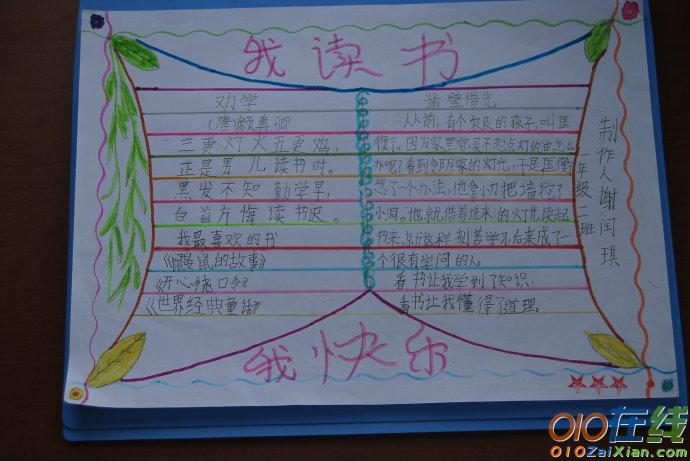 我读书
劝学
(唐)颜真卿
三更灯火五更鸡,
正是男儿读书时。
黑发不知勤学早,
白首方悔读书迟。
我最喜欢的书
《鼹鼠的故事》
《开心绕口令》
《世界经典童话》
凿壁借光
从前,有个农民的孩子,叫匡
衡。因为家里穷,买不起点灯的油,怎么
办呢?看到令阝居家的灯光,于是匡衡
想了一个办法,他拿小刀把墙挖了
小洞。他就借着进来的灯光读起
书来,就这样刻苦学习,后来成了一
个很有学问的人。
看书让我学到了知识,
看书让我懂得了道理。
制作人谢闫琪
年级二班
我快乐
010在线
010ZaiXian.com